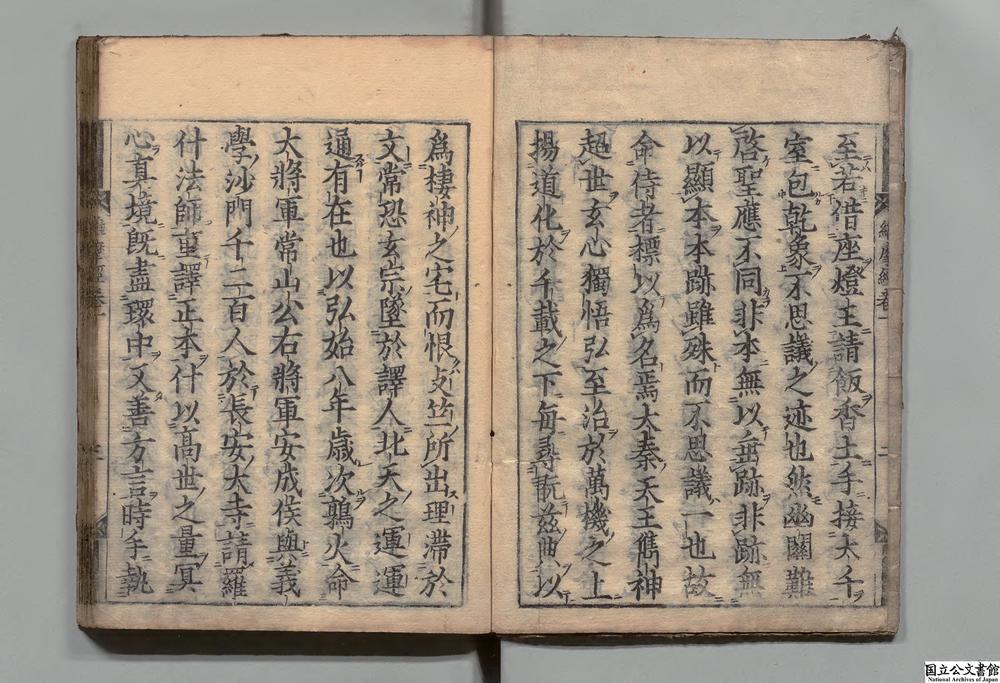 至若借座燈王請飯香土手接大千
室包乾象不思議之迹也然幽關難
啓聖應不同非本無以垂跡非跡無
以顯本本跡雖殊而不思議一也故
命侍者標以爲名焉大秦天王儁神
超世玄心獨悟弘至治於萬機之上
揚道化於千載之下每尋翫茲典以
爲棲神之宅而恨支竺所出理滯於
文常恐玄宗墜於譯人北天之運運
通有在也以弘始八年歳次鶉火命
大將軍常山公右將軍安成侯與義
學沙門千二百人於長安大寺請羅
什法師重譯正本什以高世之量冥
心真境既盡環中又善方言時手執
維摩經卷一
二
国立公文書館
National Archives of Japan